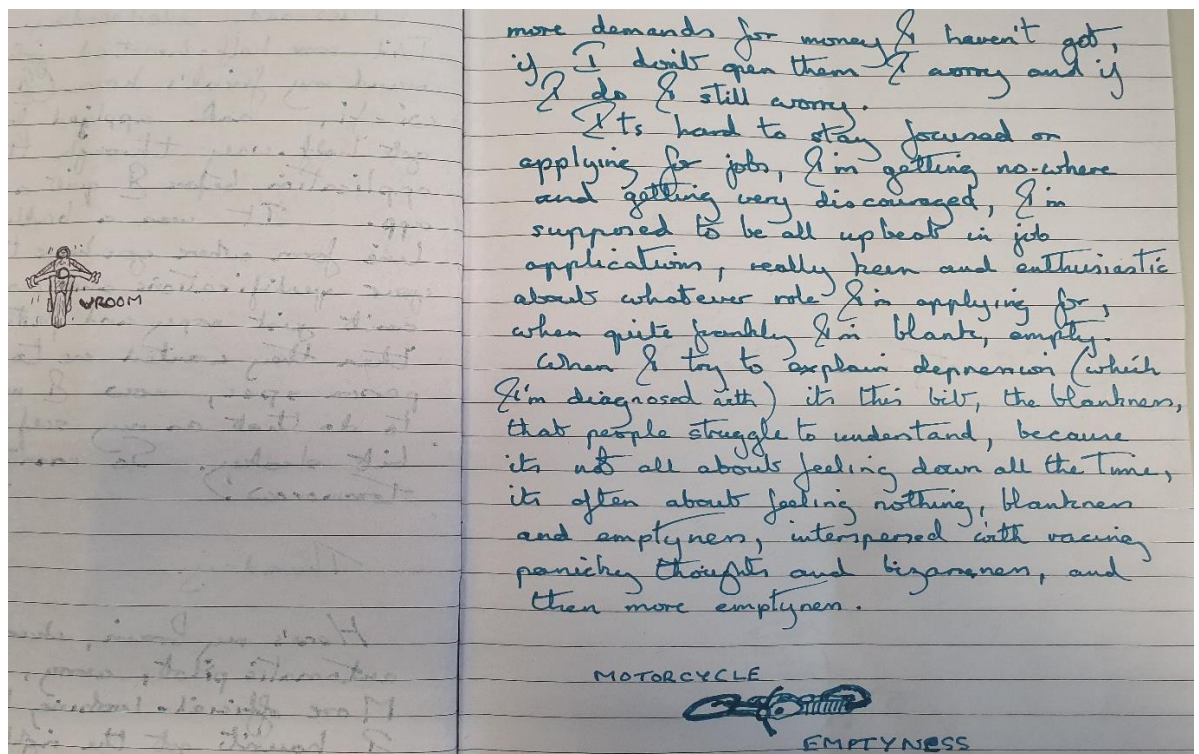 VROOM
more demands for money I haven't got,
if I don't open them I worry and if
I do I still worry.
Its hard to stay focused on
applying for jobs, I'm getting no-where
and getting very discouraged, I'm
supposed to be all upbeat in job
applications, really keen and enthusiastic
about whatever role I'm applying for,
when quite frankly I'm blank, empty.
When I try to explain depression (which
I'm diagnosed with) its this bit, the blankness,
that people struggle to understand, because
its not all about feeling down all the time,
its often about feeling nothing, blankness
and emptyness, interspersed with racing
panicky thoughts and bizareness, and
then more emptyness.
MOTORCYCLE
EMPTYNESS